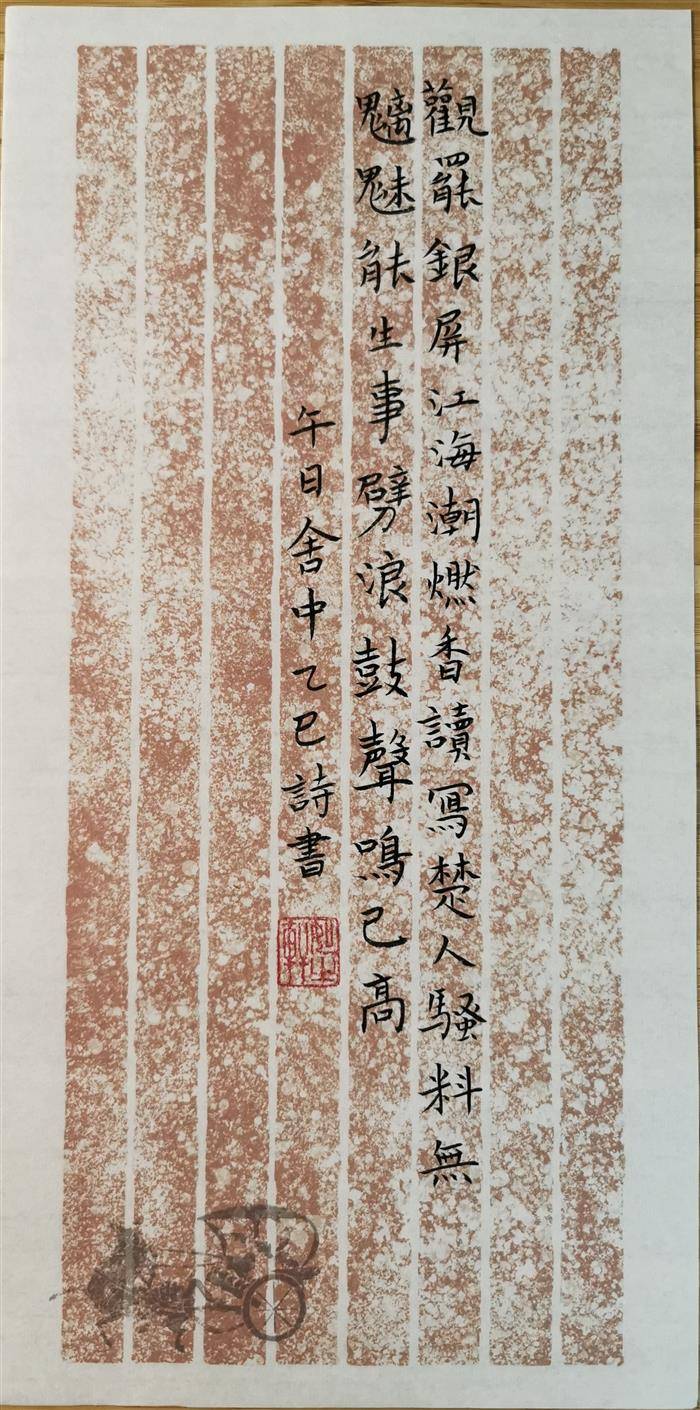 觀罷銀屏江海潮燃香讀寫楚人騷料無
魑魅能生事劈浪鼓聲鳴已高
午日舍中乙巳詩書